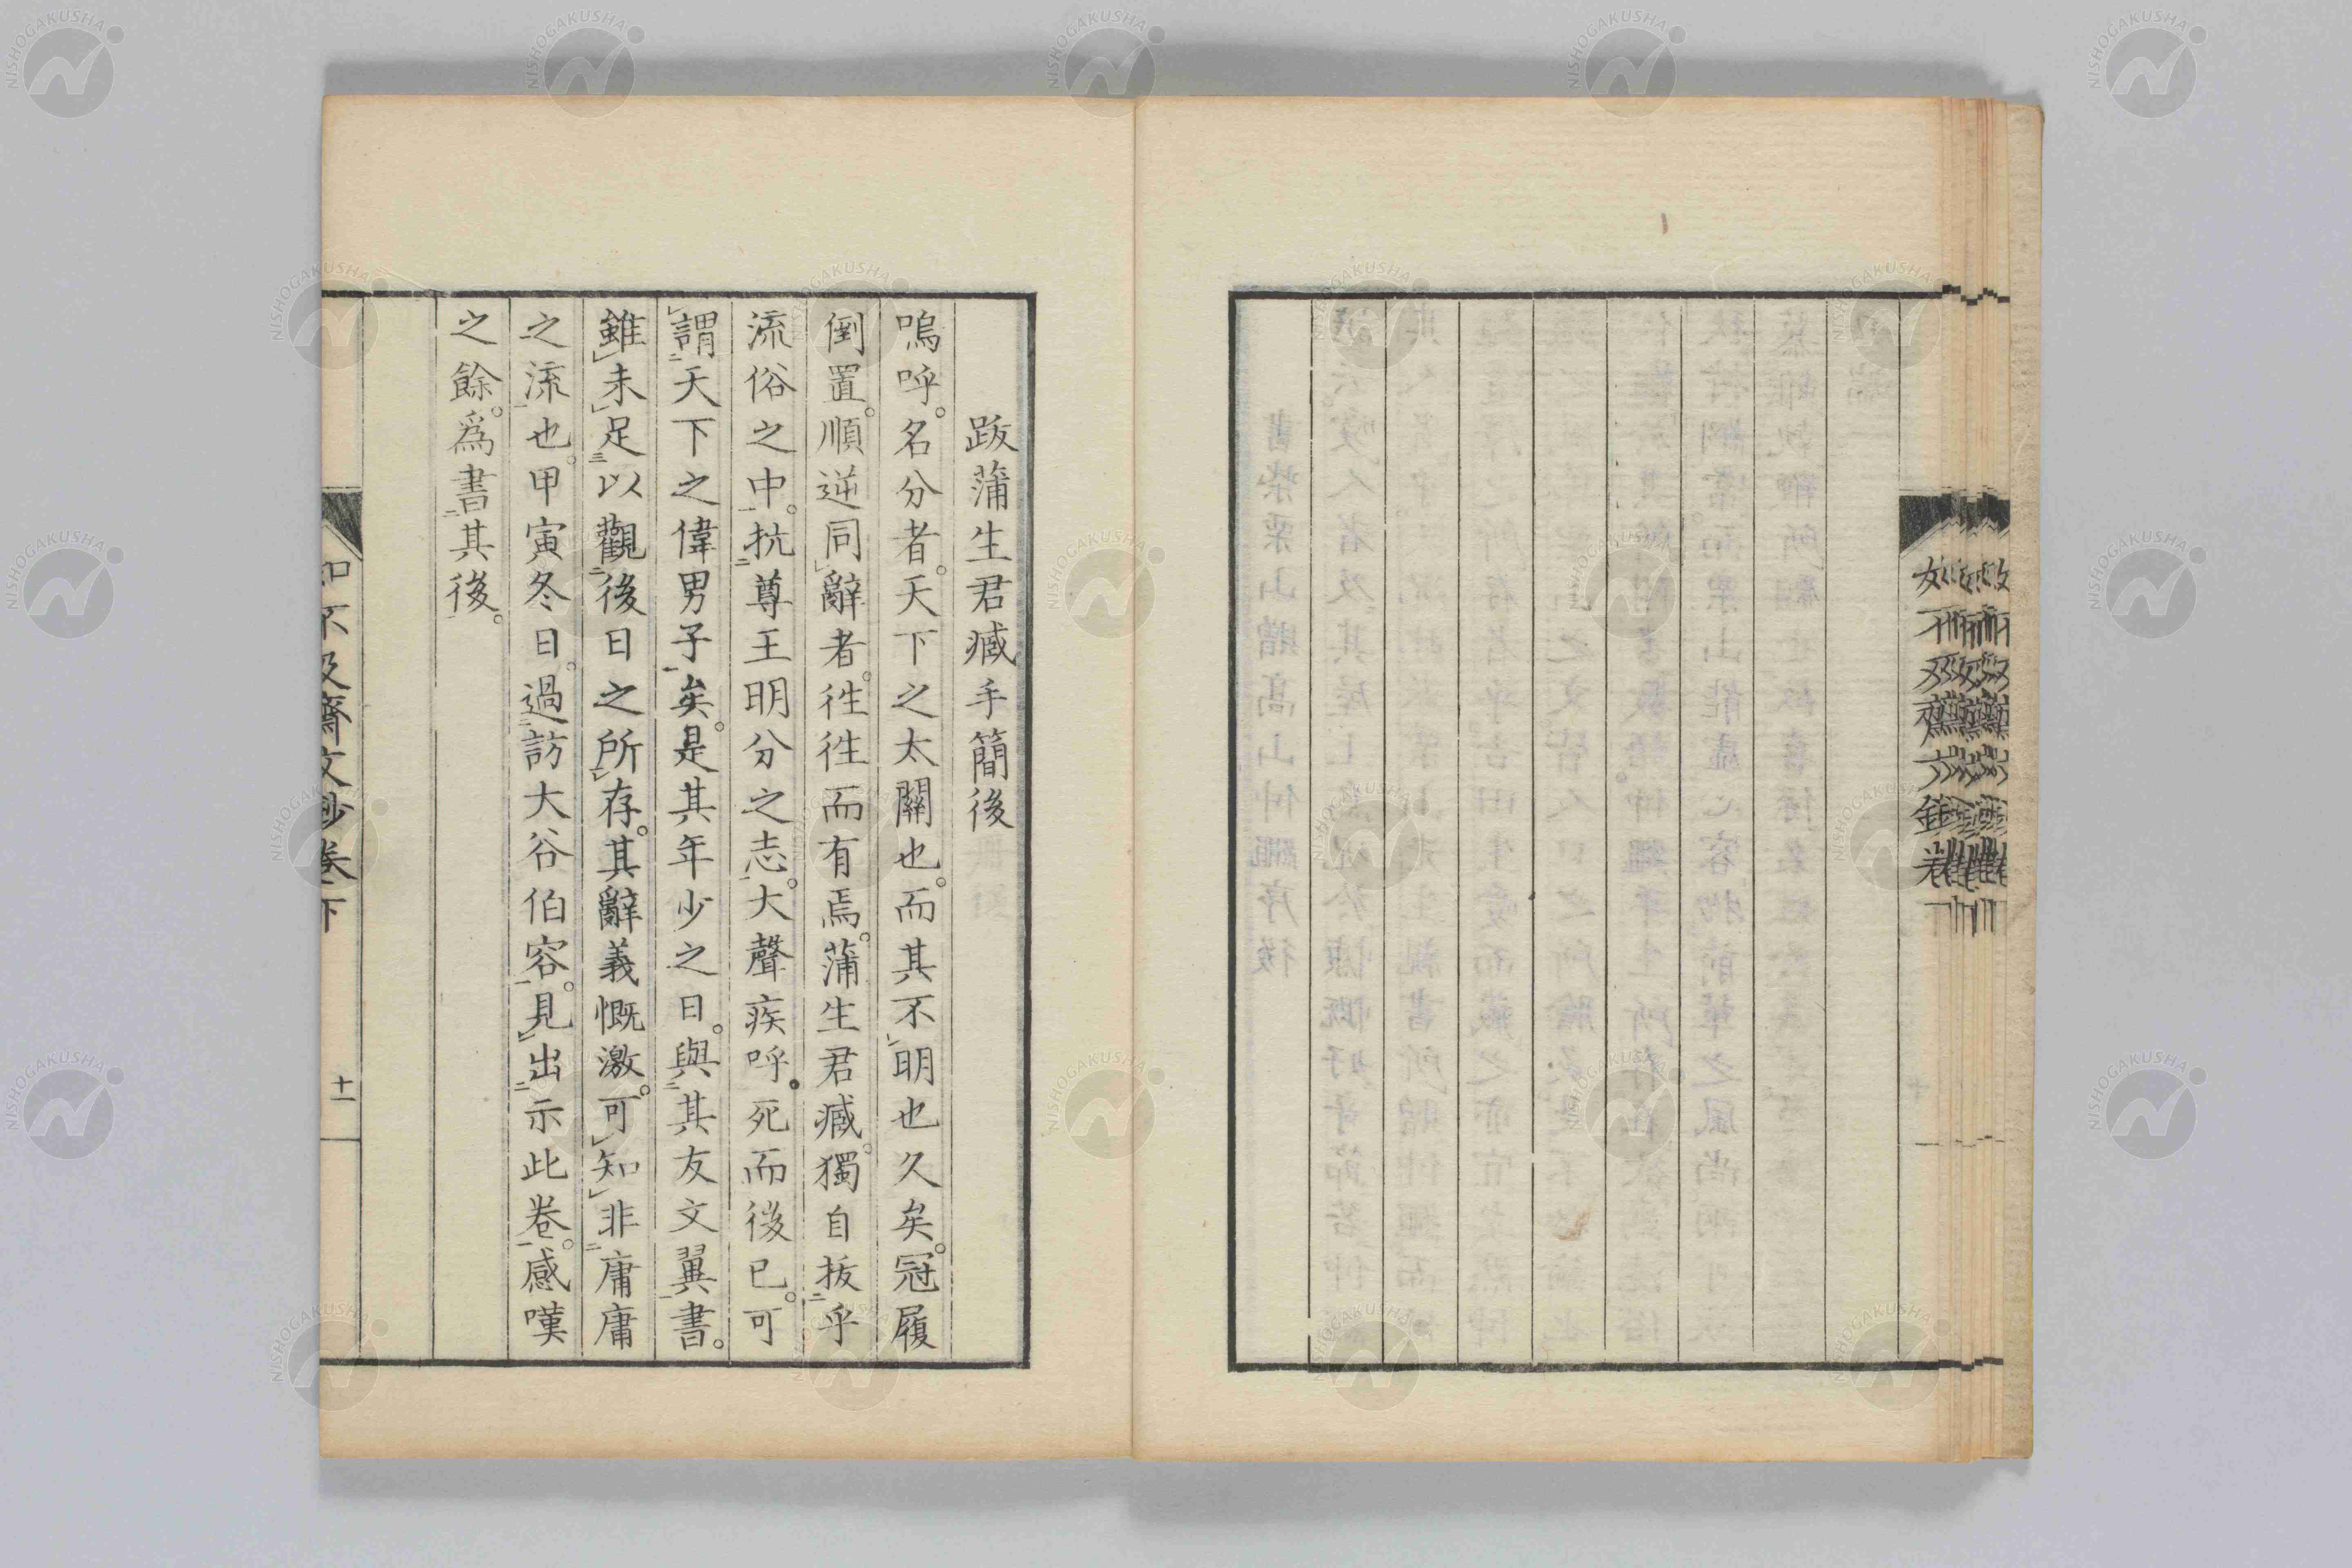 跋蒲生君臧手簡後
嗚呼。名分者。天下之太關也。而其不明也久矣。冠履
倒置。順逆同辭者。徃徃而有焉。蒲生君臧。獨自拔乎
流俗之中。抗尊王明分之志。大聲疾呼。死而後已。可
謂天下之偉男子矣。是其年少之日。與其友文翼書。
雖未足以觀後日之所存。其辭義慨激。可知非庸庸
之流也。甲寅冬日。過訪大谷伯容。見出示此卷。感嘆
之餘。爲書其後。
知不及齋文鈔卷下
十一
NISHOGAKUSHA